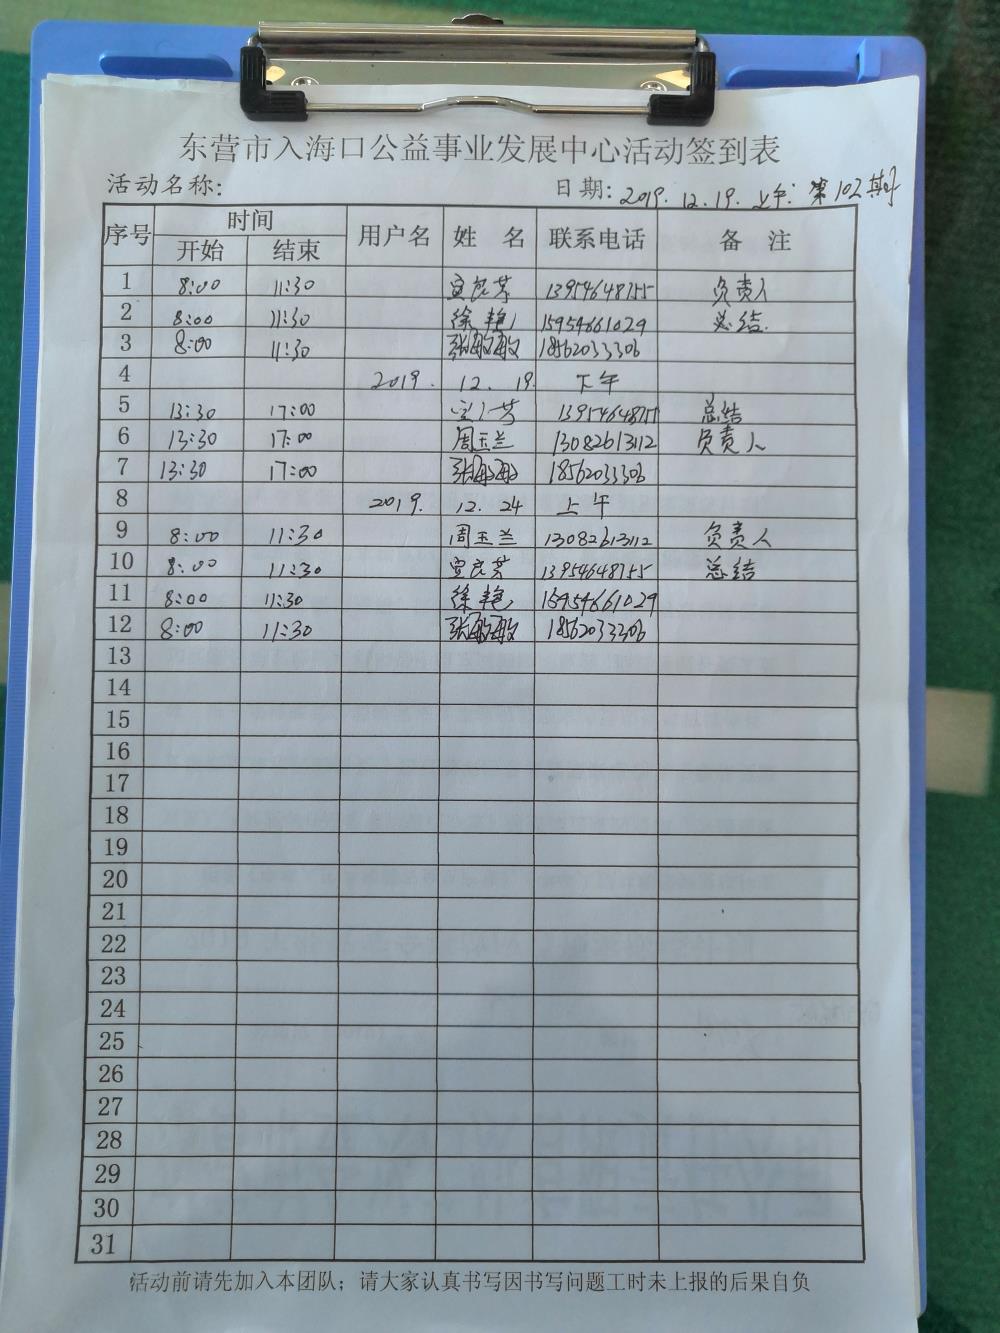 东营市入海口公益事业发展中心活动签到表
活动名称: 日期: 2019. 12. 19. 上午: 第102期
序号 时间 用户名 姓 名 联系电话 备 注
开始 结束
1 8:00 11:30 宜良芳 13954648755 负责人
2 8:00 11:30 徐艳 15954661029 总结
3 8:00 11:30 张敏敏 18562033306
4 2019. 12. 19. 下午
5 13:30 17:00 芳 13954648755 总结
6 13:30 17:00 周玉兰 13082613112 负责人
7 13:30 17:00 张敏敏 18562033306
8 2019. 12. 24 上午
9 8:00 11:30 周玉兰 13082613112 负责人
10 8:00 11:30 宜良芳 13954648755 总结
11 8:00 11:30 徐艳 15954661029
12 8:00 11:30 张敏敏 18562033306
13
14
15
16
17
18
19
20
21
22
23
24
25
26
27
28
29
30
31
活动前请先加入本团队；请大家认真书写因书写问题工时未上报的后果自负